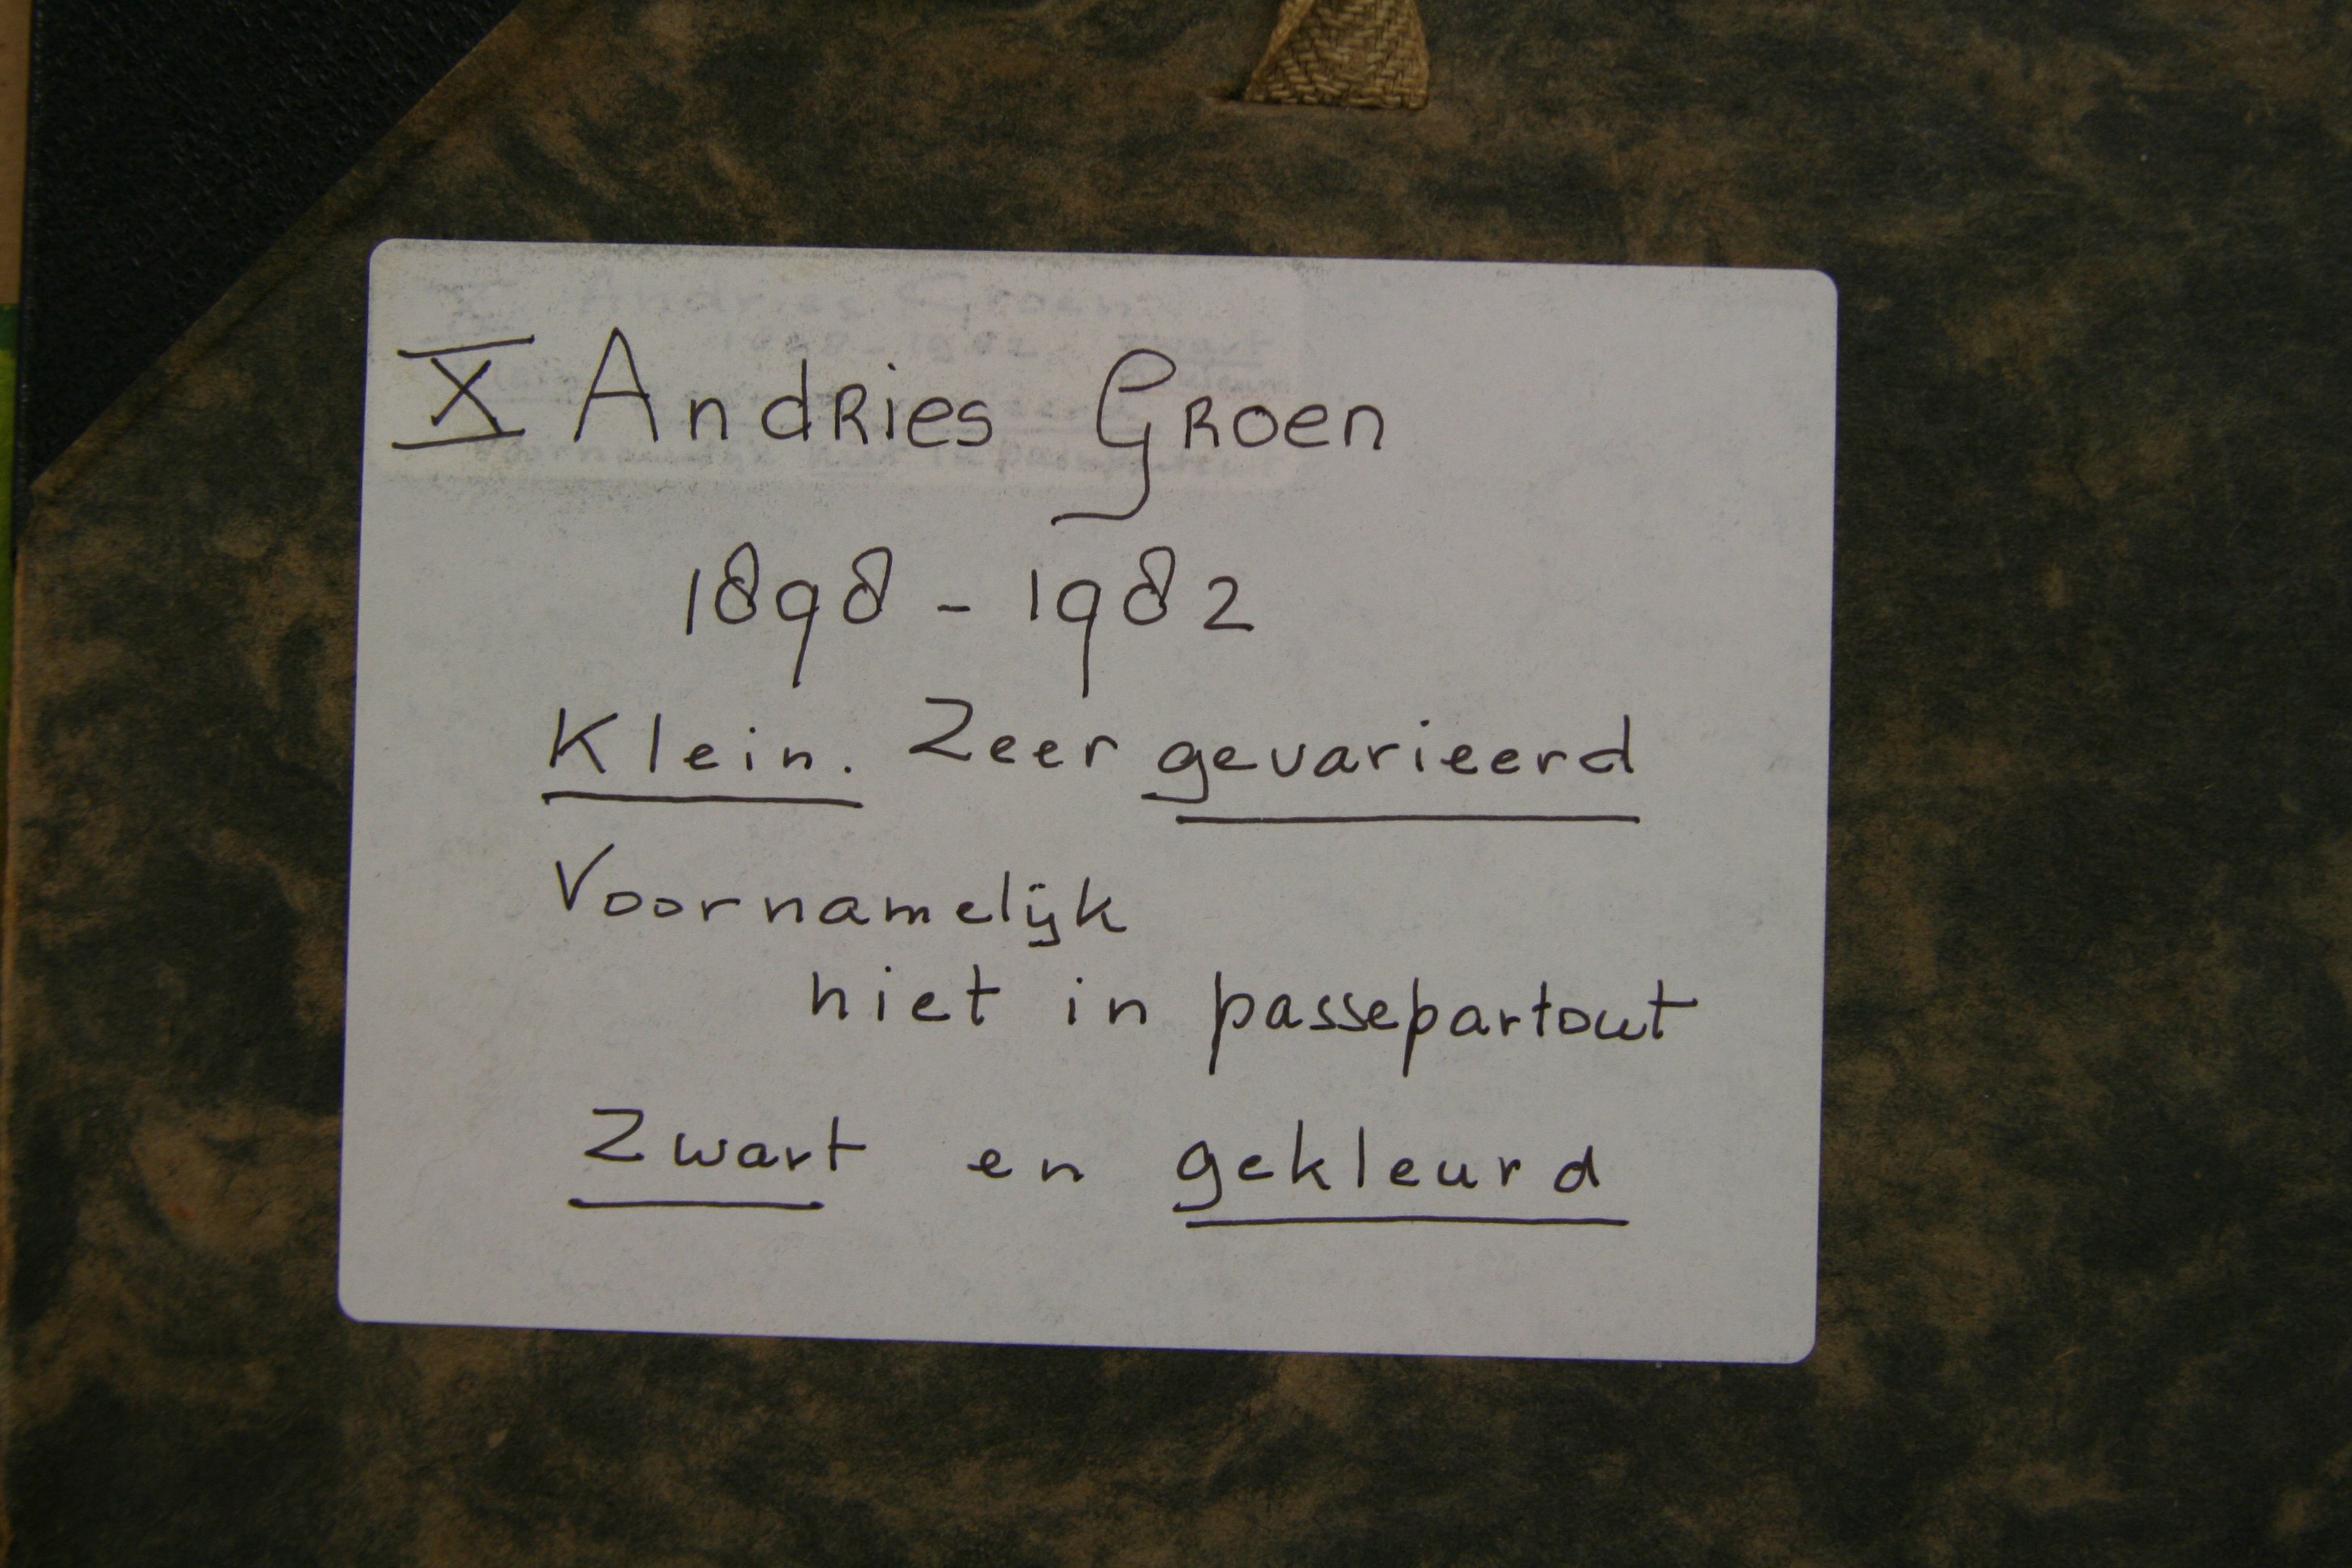 X Andries Groen
1898 - 1982
Klein. Zeer gevarieerd
Voornamelijk
niet in passepartout
Zwart en gekleurd